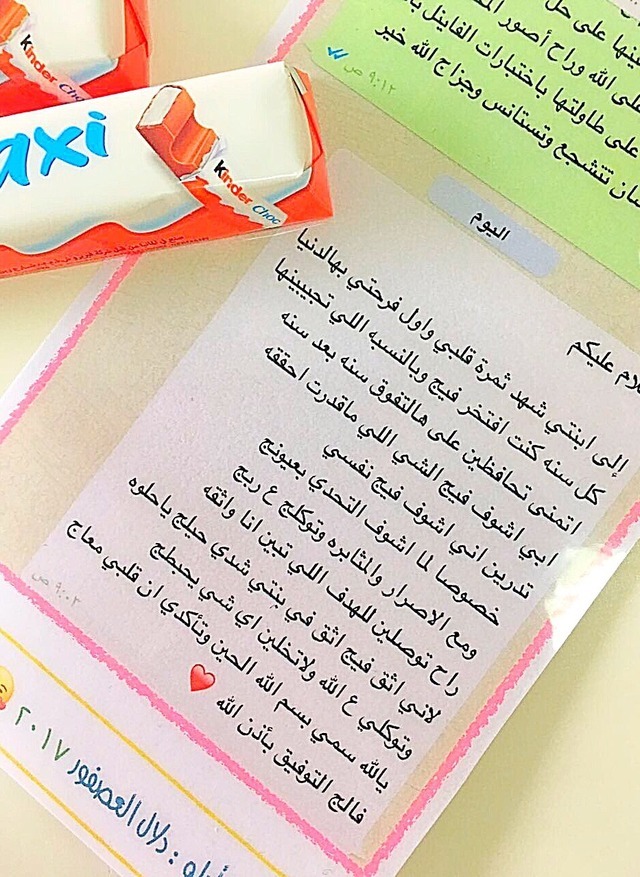 Kinder Choc
axi
Kinder Choc
بينها على حل
على الله وراح أصور
على طاولتها باختبارات الفاينل
تتشجع وتستانس وجزاج الله خير
٩:١٢ ص
اليوم
عليكم
إلى ابنتي شهد ثمرة قلبي واول فرحتي بهالدنيا
كل سنه كنت افتخر فيج وبالنسبه اللي تجيبينها
اتمنى تحافظين على هالتفوق سنه بعد سنه
ابي اشوف فيج الشي اللي ماقدرت احققه
تدرين اني اشوف فيج نفسي
خصوصا لما اشوف التحدي بعيونج
ومع الاصرار والمثابره وتوكلج ع ربج
راح توصلين للهدف اللي تبين انا واثقه
لاني اثق فيج اثق في بنتي شدي حيلج ياحلوه
وتوكلي ع الله ولاتخلين اي شي يحبطج
يالله سمي بسم الله الحين وتأكدي ان قلبي معاج
فالج التوفيق بأذن الله ❤️
٩:٠٢ ص
: دلال العصفور ٢٠١٧